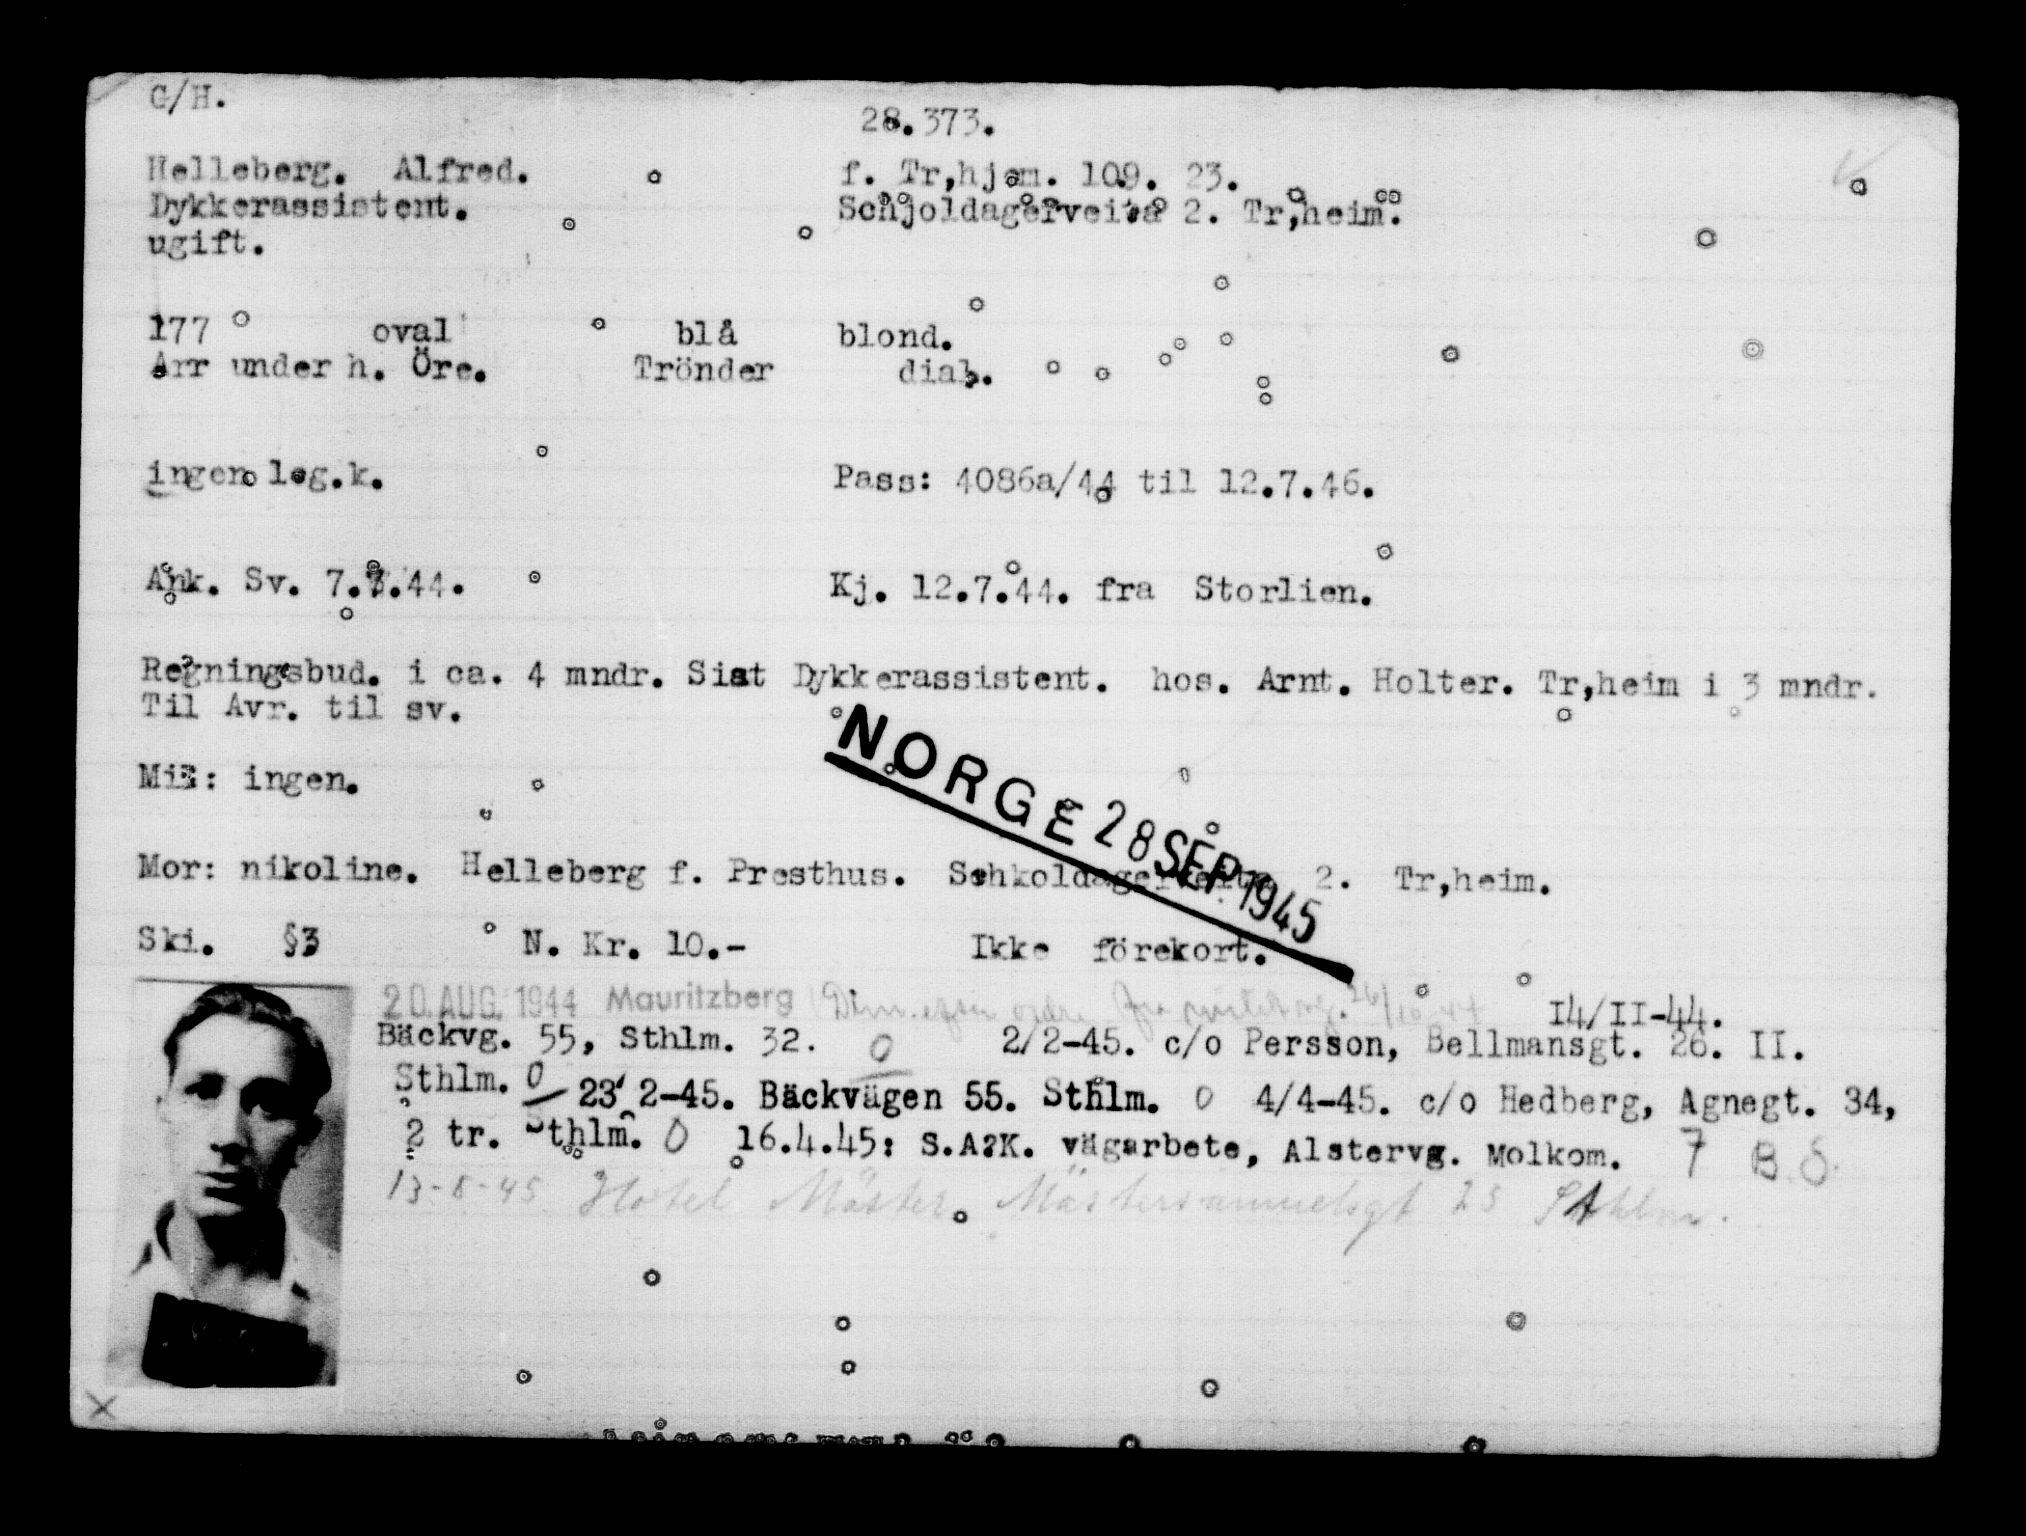 G/H.
28.373.
Helleberg. Alfred. f. Tr,hjem. 109. 23.
Dykkerassistent. Schjoldagerveita 2. Tr,heim.
ugift.
177 oval blå blond.
Arr under h. Öre. Trönder dial.
ingen leg.k. Pass: 4086a/44 til 12.7.46.
Ank. Sv. 7.7.44. Kj. 12.7.44. fra Storlien.
Regningsbud. i ca. 4 mndr. Sist Dykkerassistent. hos. Arnt. Holter. Tr,heim i 3 mndr.
Til Avr. til sv.
NORGE 28 SEP. 1945
Mil: ingen.
Mor: nikoline. Helleberg f. Presthus. Schkoldagerveita 2. Tr,heim.
Ski. §3 N. Kr. 10.- Ikke förekort.
20. AUG. 1944 Mauritzberg 14/11-44.
Bäckvg. 55, Sthlm. 32. O 2/2-45. c/o Persson, Bellmansgt. 26. II.
Sthlm. O 23/2-45. Bäckvägen 55. Sthlm. O 4/4-45. c/o Hedberg, Agnegt. 34,
2 tr. Sthlm. O 16.4.45: S.A?K. vägarbete, Alstervg. Molkom. 7 B.S.
13-8-45 Hotel Mäster, Mästersamuelsgt 25 Sthlm.